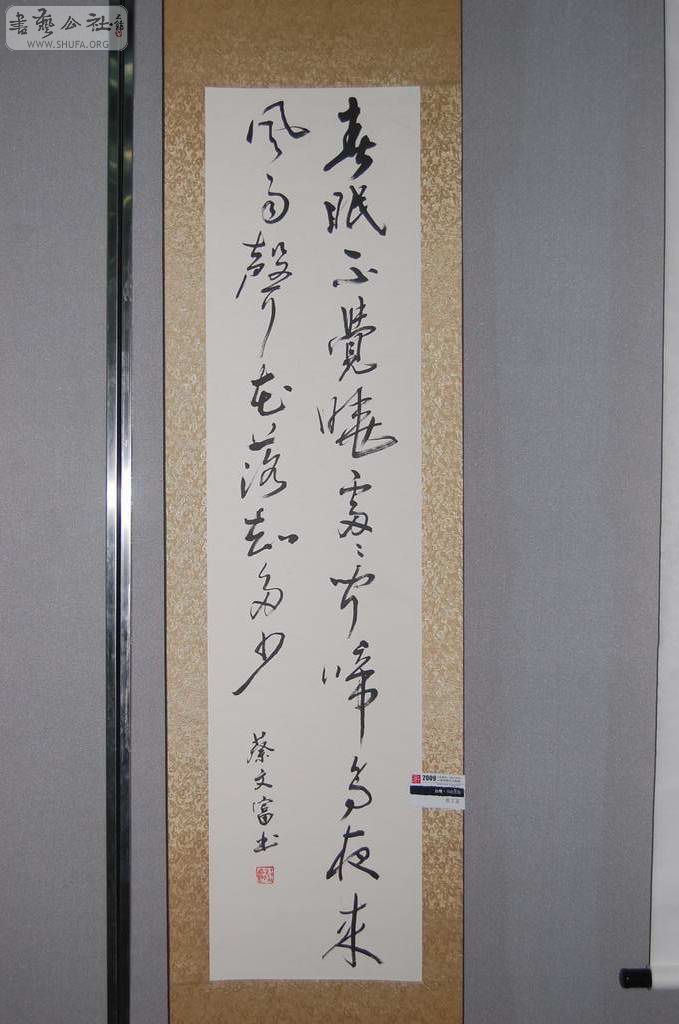 春眠不覺曉處〻聞啼鳥夜來
風雨聲花落知多少
蔡文富书
書藝公社
WWW.SHUFA.ORG
2009